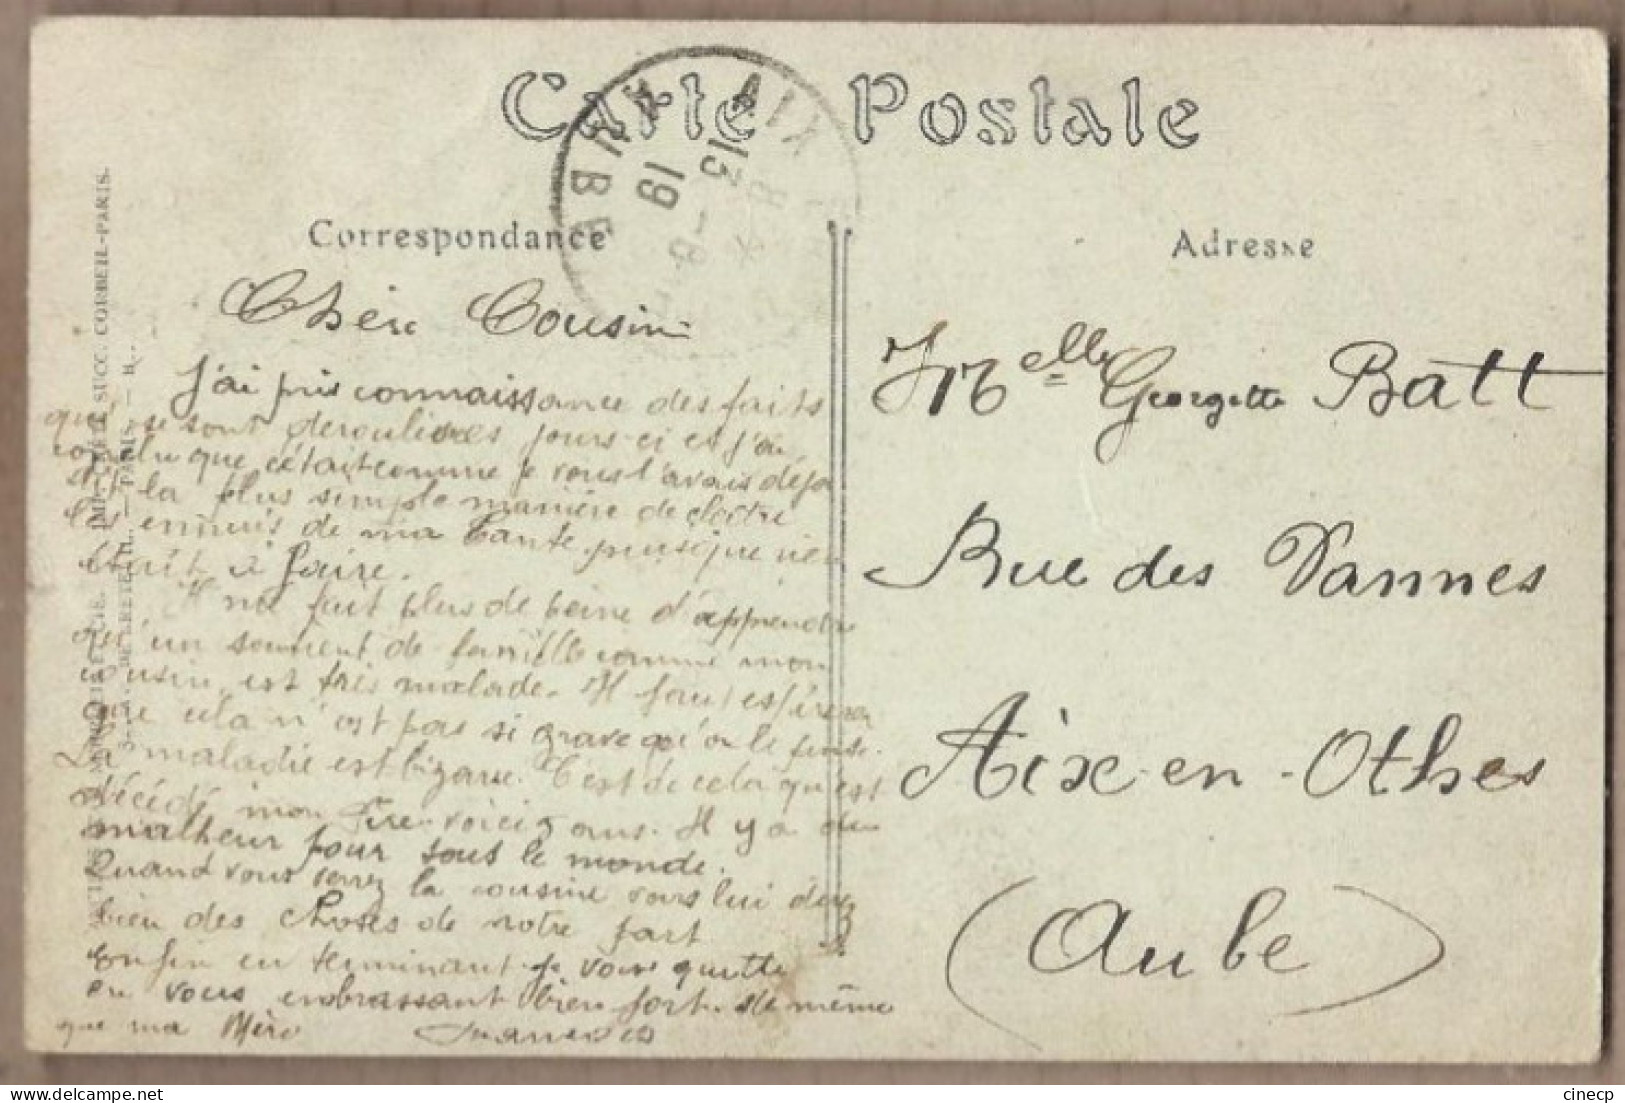 Carte Postale
Correspondance
Adresse
AIX
AUBE
13
19
Chère Cousine
J'ai pris connaissance des faits
qui se sont déroulés ces jours-ci et j'ai
que c'était comme je vous l'avais déjà
dit la plus simple manière de
les ennuis de ma tante, puisque rien
était à faire.
Il me fait plus de peine d'apprendre
qu'un soutient de famille comme mon
cousin est très malade. Il faut espérer
que cela n'est pas si grave qu'on le pense.
La maladie est bizarre. C'est de cela qu'est
décédé mon Père voici 5 ans. Il y a du
malheur pour tous le monde.
Quand vous verrez la cousine vous lui direz
bien des choses de notre part
Enfin en terminant je vous quitte
en vous embrassant bien fort de même
que ma Mère
Melle Georgette Batt
Rue des Vannes
Aix-en-Othes
(Aube)
SUCC. CORBEIL-PARIS.
cinecp